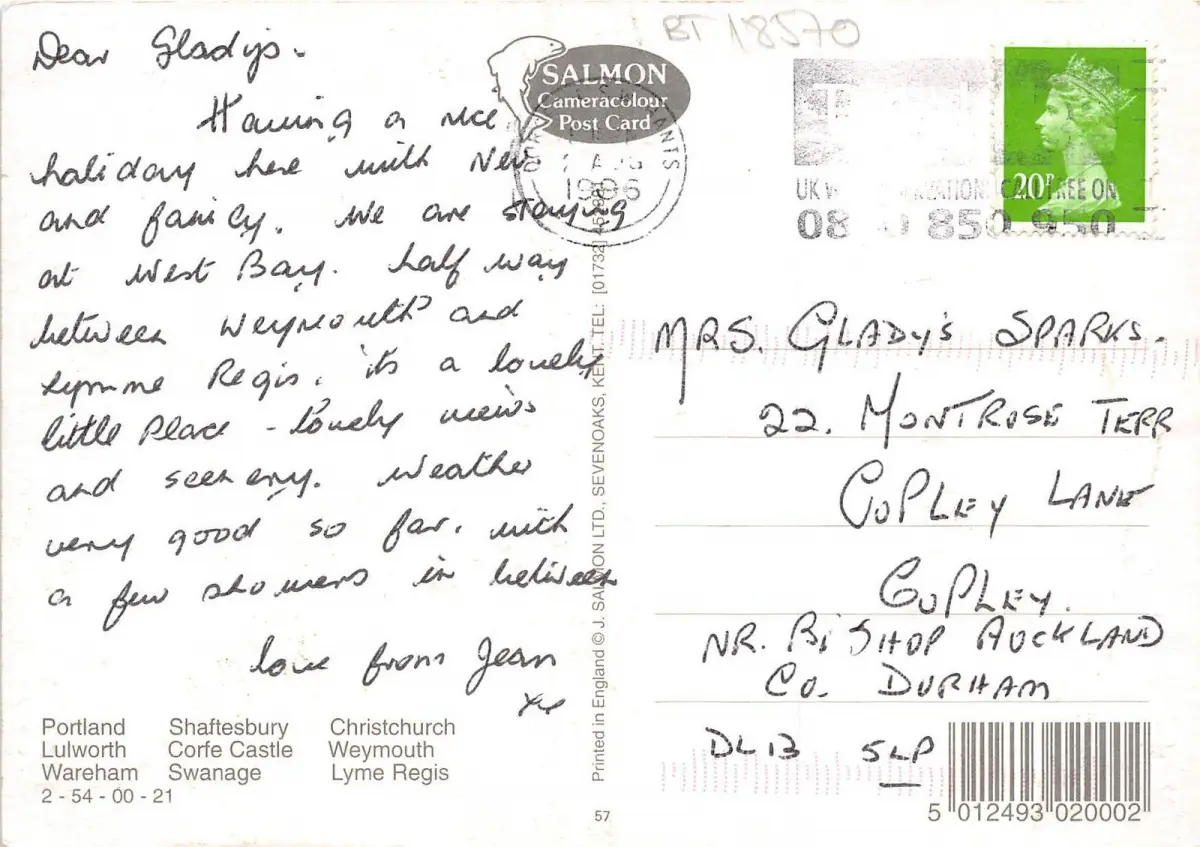 BT 18570
Dear Gladys.
Having a nice
holiday here with Nev
and family. We are staying
at West Bay. half way
between Weymouth and
Lymme Regis. its a lovely
little Place - lovely views
and scenery. Weather
very good so far. with
a few showers in between
love from Jean
xx
Portland Shaftesbury Christchurch
Lulworth Corfe Castle Weymouth
Wareham Swanage Lyme Regis
2 - 54 - 00 - 21
SALMON
Cameracolour
Post Card
AUG
1996
HANTS
Printed in England © J. SALMON LTD., SEVENOAKS, KENT. TEL: [01732]
57
UK
FREE ON
850 950
20P
MRS. GLADYS SPARKS.
22. MONTROSE TERR
COPLEY LANE
COPLEY.
NR. BISHOP AUCKLAND
CO. DURHAM
DL13 5LP
5 012493 020002